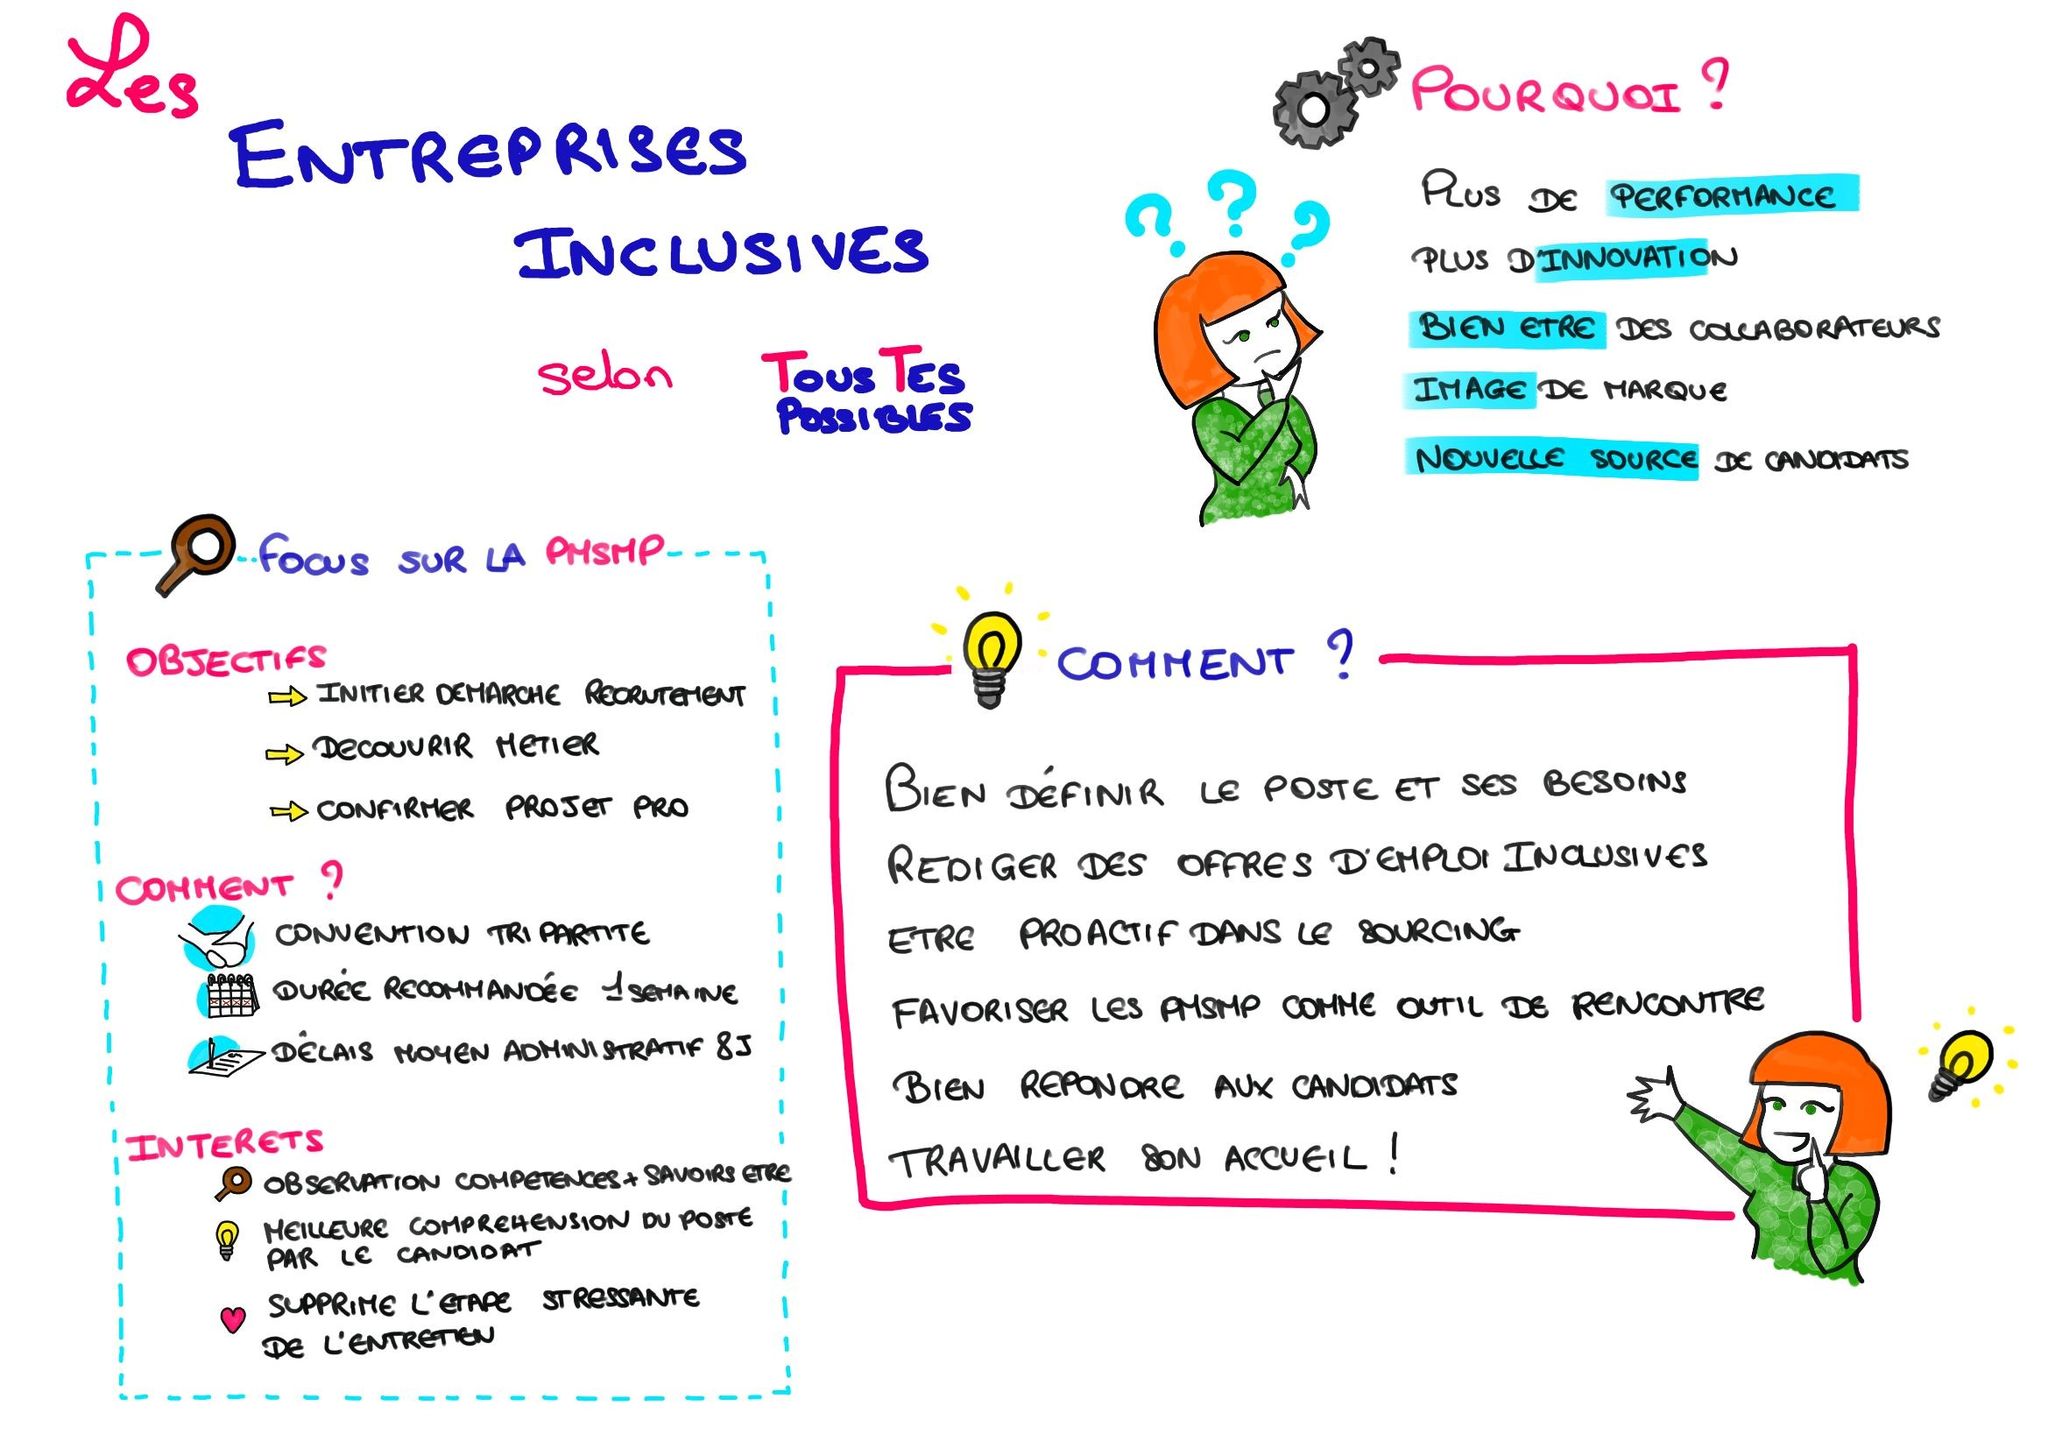 Les
ENTREPRISES
INCLUSIVES
selon TOUS TES
POSSIBLES
POURQUOI ?
PLUS DE PERFORMANCE
PLUS D'INNOVATION
BIEN ETRE DES COLLABORATEURS
IMAGE DE MARQUE
NOUVELLE SOURCE DE CANDIDATS
FOCUS SUR LA PMSMP
OBJECTIFS
INITIER DEMARCHE RECRUTEMENT
DECOUVRIR METIER
CONFIRMER PROJET PRO
COMMENT ?
CONVENTION TRIPARTITE
DURÉE RECOMMANDÉE 1 SEMAINE
DÉLAIS MOYEN ADMINISTRATIF 8J
INTERETS
OBSERVATION COMPETENCES + SAVOIRS ETRE
MEILLEURE COMPREHENSION DU POSTE
PAR LE CANDIDAT
SUPPRIME L'ETAPE STRESSANTE
DE L'ENTRETIEN
COMMENT ?
BIEN DÉFINIR LE POSTE ET SES BESOINS
REDIGER DES OFFRES D'EMPLOI INCLUSIVES
ETRE PROACTIF DANS LE SOURCING
FAVORISER LES PMSMP COMME OUTIL DE RENCONTRE
BIEN REPONDRE AUX CANDIDATS
TRAVAILLER SON ACCUEIL !